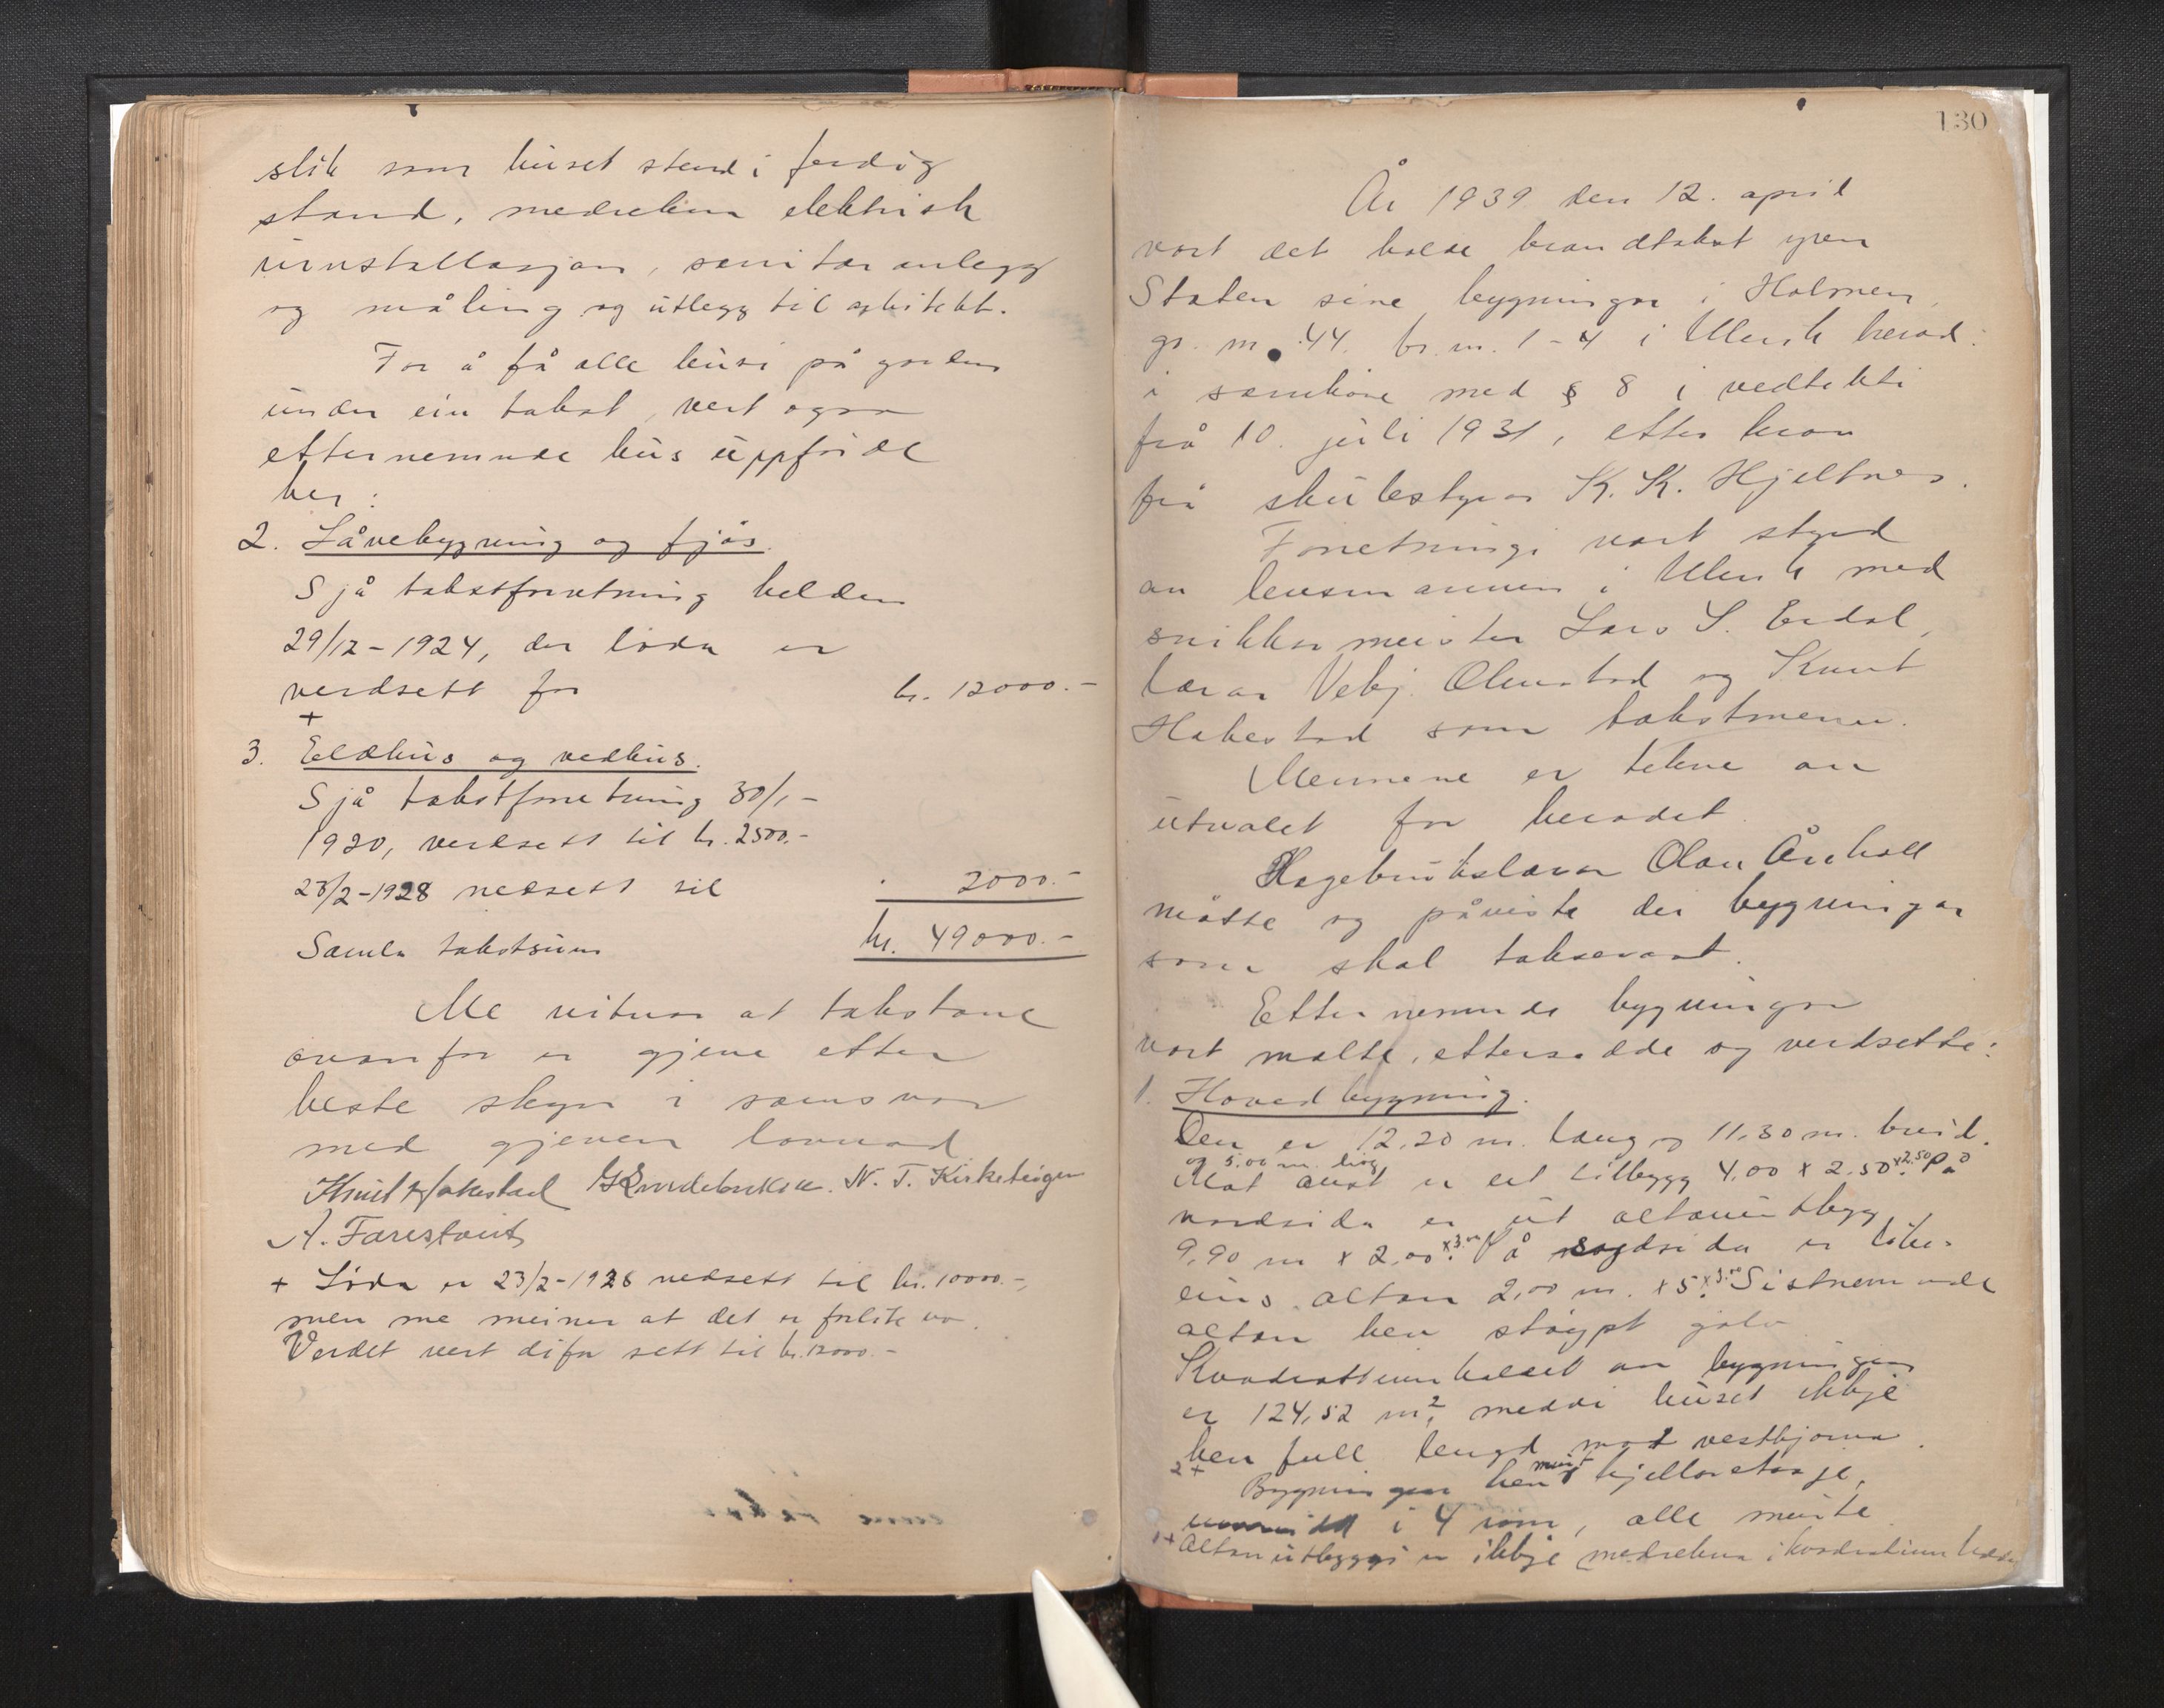 slik som huset stend i ferdig
stand, medrekna elektrisk
innstallasjon, sanitæranlegg
og måling og utlegg til arkitekt.
For å få alle husi på garden
under ein takst, vert ogso
etternemnde hus uppførde
her:
2. Låvebygning og fjøs.
Sjå takstforretning halden
29/12-1924, der löda er
verdsett for kr. 12000.-
+
3. Eldhus og vedhus.
Sjå takstforretning 30/1-
1920, verdsett til kr. 2500.-
23/2-1928 nedsett til " 2000.-
Samla takstsum kr. 49000.-
Me vitnar at takstane
ovanfor er gjevne etter
beste skyn i samsvar
med gjeven lovnad
Knut Hakestad N. T. Kirkehaugen
A. Farestveit
+ Löda er 23/2-1928 nedsett til kr. 10000.-,
men me meiner at det er for lite no.
Verdet vert difor sett til kr. 12000.-
130
År 1939 den 12. april
vart det halde brandtakst yver
Staten sine bygningar i Holmen,
gr. nr. 44. br. nr. 1-4 i Ulvik herad.
i samhøve med § 8 i vedtekti
frå 10. juli 1931, etter krav
frå skulestyrar K. K. Hjeltnes.
Forretningi vart styrd
av lensmannen i Ulvik med
snikkarmeister Lars S. Erdal,
lærar Vebj. Olmstad og Knut
Hakestad som takstmenn.
Mennene er tekne av
utvalet for heradet.
Hagebrukslærar Olav Århall
møtte og påviste dei bygningar
som skal takserast.
Etternemnde bygningar
vart mælte, ettersedde og verdsette:
1. Hovedbygning.
Den er 12,20 m. lang og 11,30 m. breid.
og 5.00 m. høg
Mot aust er eit tilbygg 4,00 x 2.50 x 2.50. På
nordsida er eit altanutbygg
9,90 m x 2,00 x 3.00. På sørdsida er like-
eins altan 2,00 m. x 5 x 3.00. Sistnemnde
altan hev støypt golv
Kvadratinnhaldet av bygningen
er 124,52 m², meddi huset ikkje
hev full lengd mot vesthjørna.
2+
Bygningen hev murt kjelleretasje,
i 4 rom, alle murte
1+ Altanutbyggi er ikkje medrekna i kvadratinnhaldet